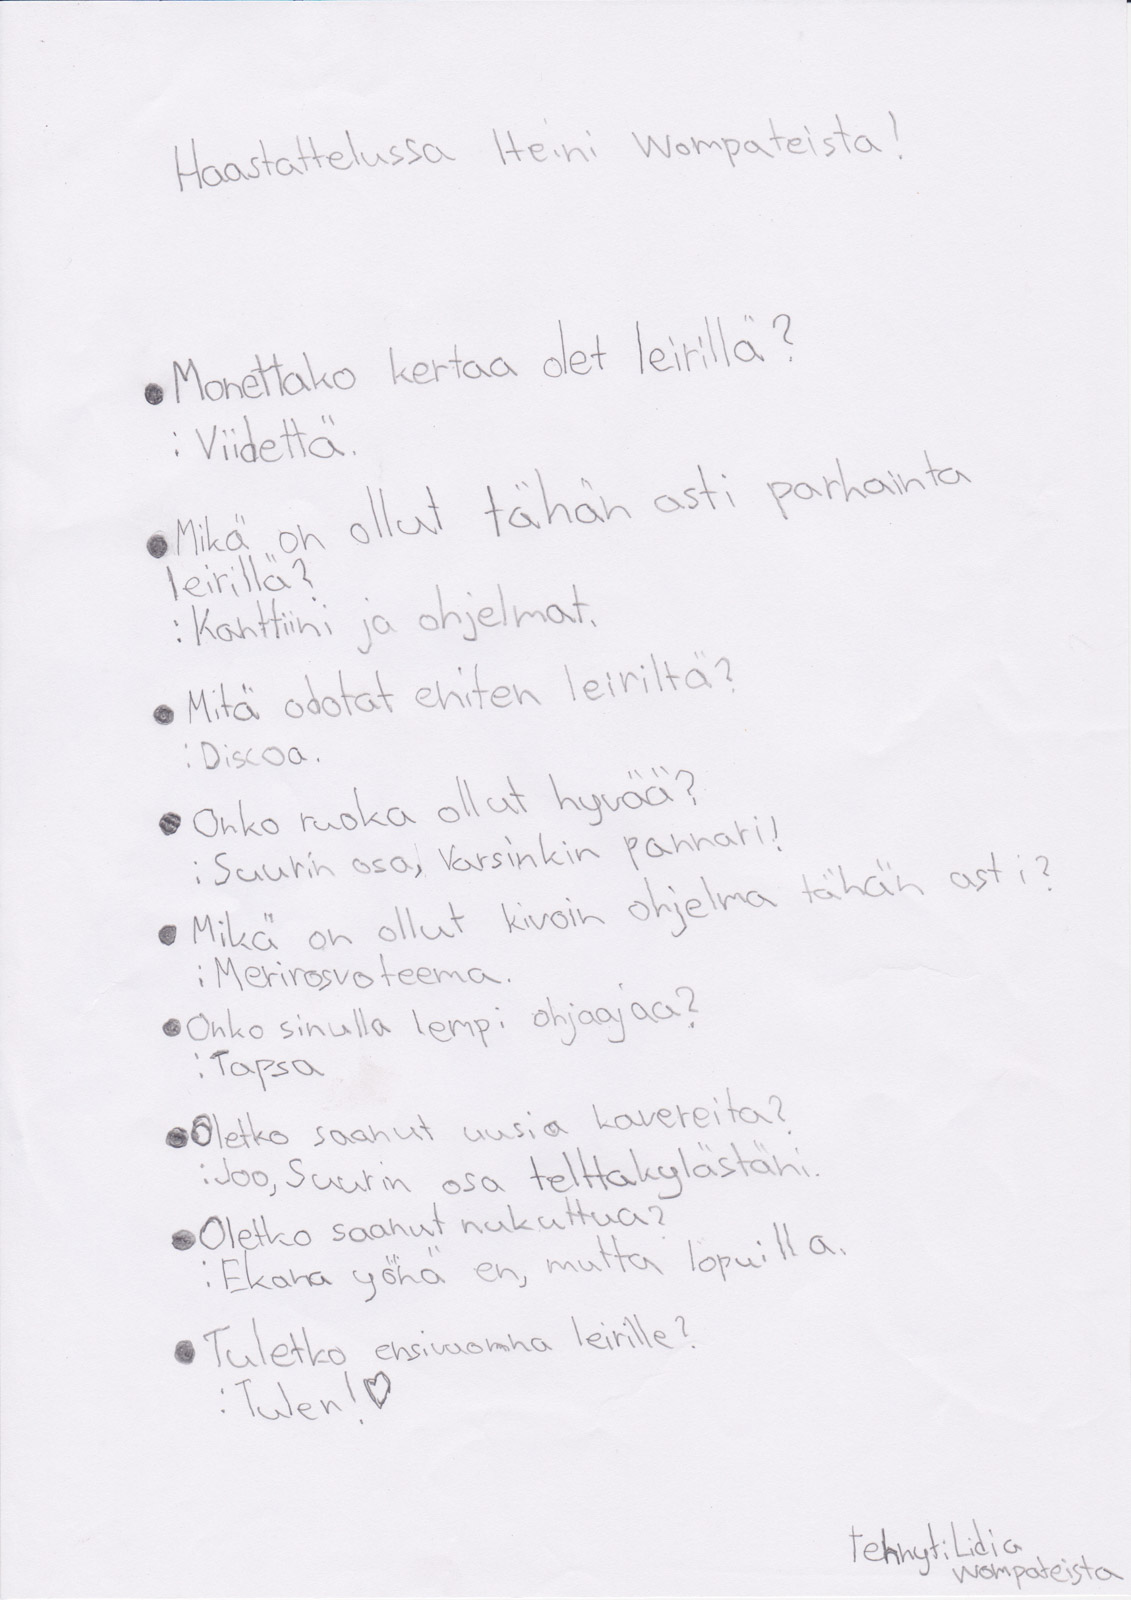 Haastattelussa Heini Wompateista!
● Monettako kertaa olet leirillä?
: Viidettä.
● Mikä on ollut tähän asti parhainta
leirillä?
: Kanttiini ja ohjelmat.
● Mitä odotat eniten leiriltä?
: Discoa.
● Onko ruoka ollut hyvää?
: Suurin osa, Varsinkin pannari!
● Mikä on ollut kivoin ohjelma tähän asti?
: Merirosvoteema.
● Onko sinulla lempi ohjaajaa?
: Tapsa
● Oletko saanut uusia kavereita?
: Joo, Suurin osa telttakylästäni.
● Oletko saanut nukuttua?
: Ekana yönä en, mutta lopuilla.
● Tuletko ensivuonna leirille?
: Tulen! ♡
tehnyt: Lidia
wompateista